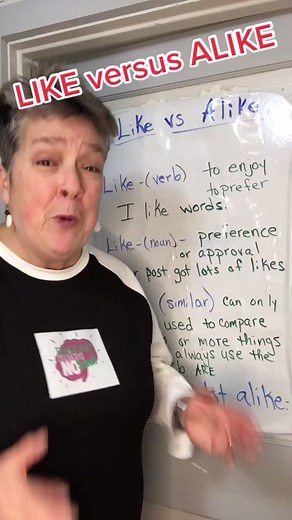 LIKE versus ALIKE
Like vs Alike
Like-(verb) to enjoy
to prefer
I like words.
Like-(noun)- preference
or approval
post got lots of likes
(similar) can only
used to compare
or more things
always use the
ARE
alike.
NO